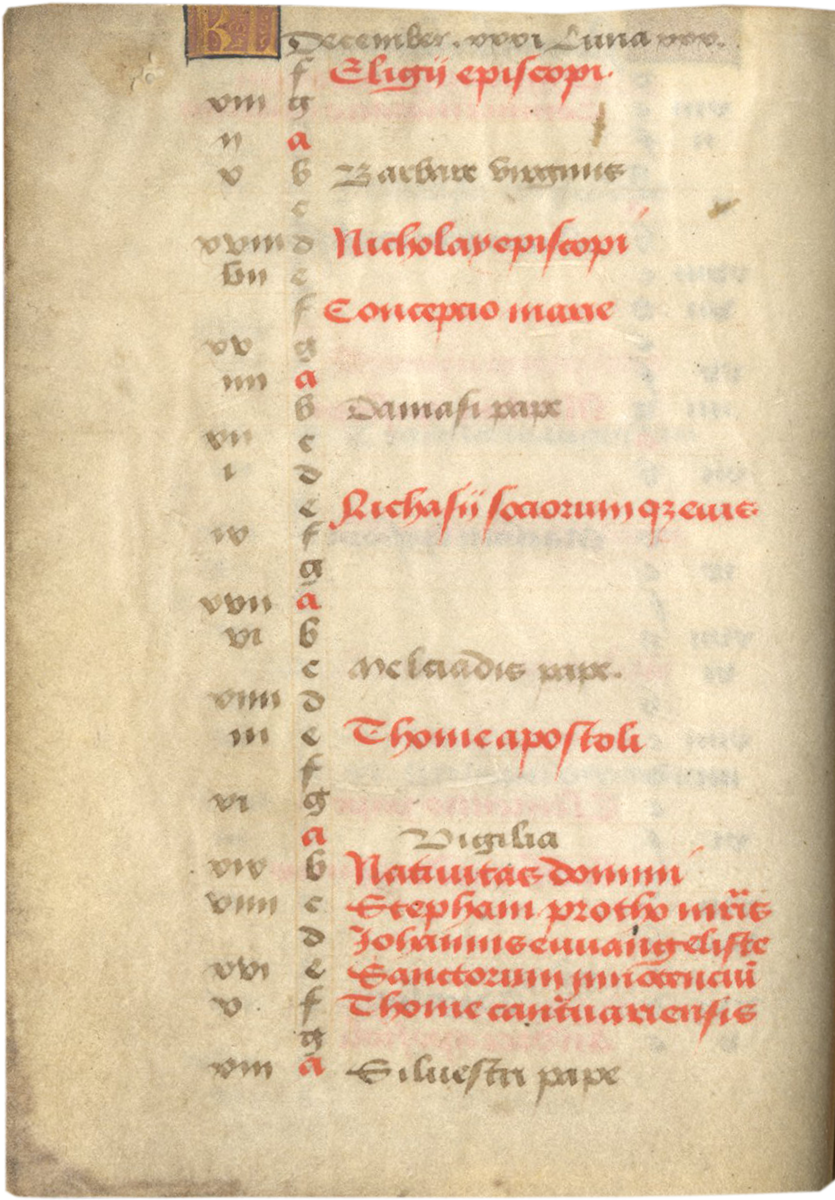 KL December. xxxi Luna xxx.
f Eligij episcopi.
xiii g
ii a
x b Barbare virginis
c
xviii d Nicholay episcopi
vii e
f Conceptio marie
xv g
iiii a
b Damasi pape
xii c
i d
e Nichasij sociorumqz eius
ix f
g
xvii a
vi b
c Melciadis pape.
xiiii d
iii e Thome apostoli
f
xi g
a Vigilia
xix b Natiuitas domini
viii c Stephani protho mr̄is
d Johannis euuangeliste
xvi e Sanctorum innocenciū
v f Thome cantuariensis
g
xiii a Siluestri pape